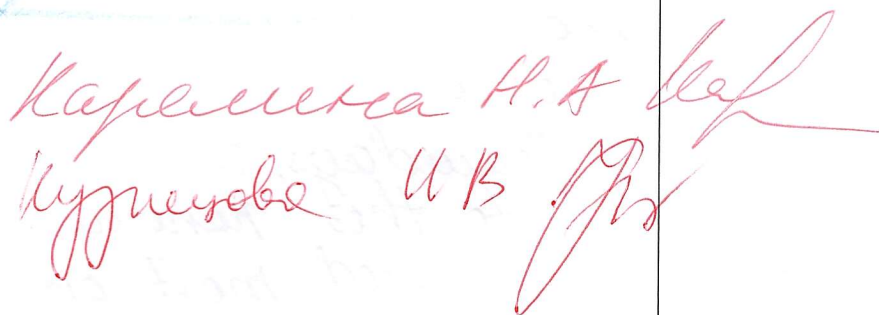 Карелина Н.А
Кузнецова И В